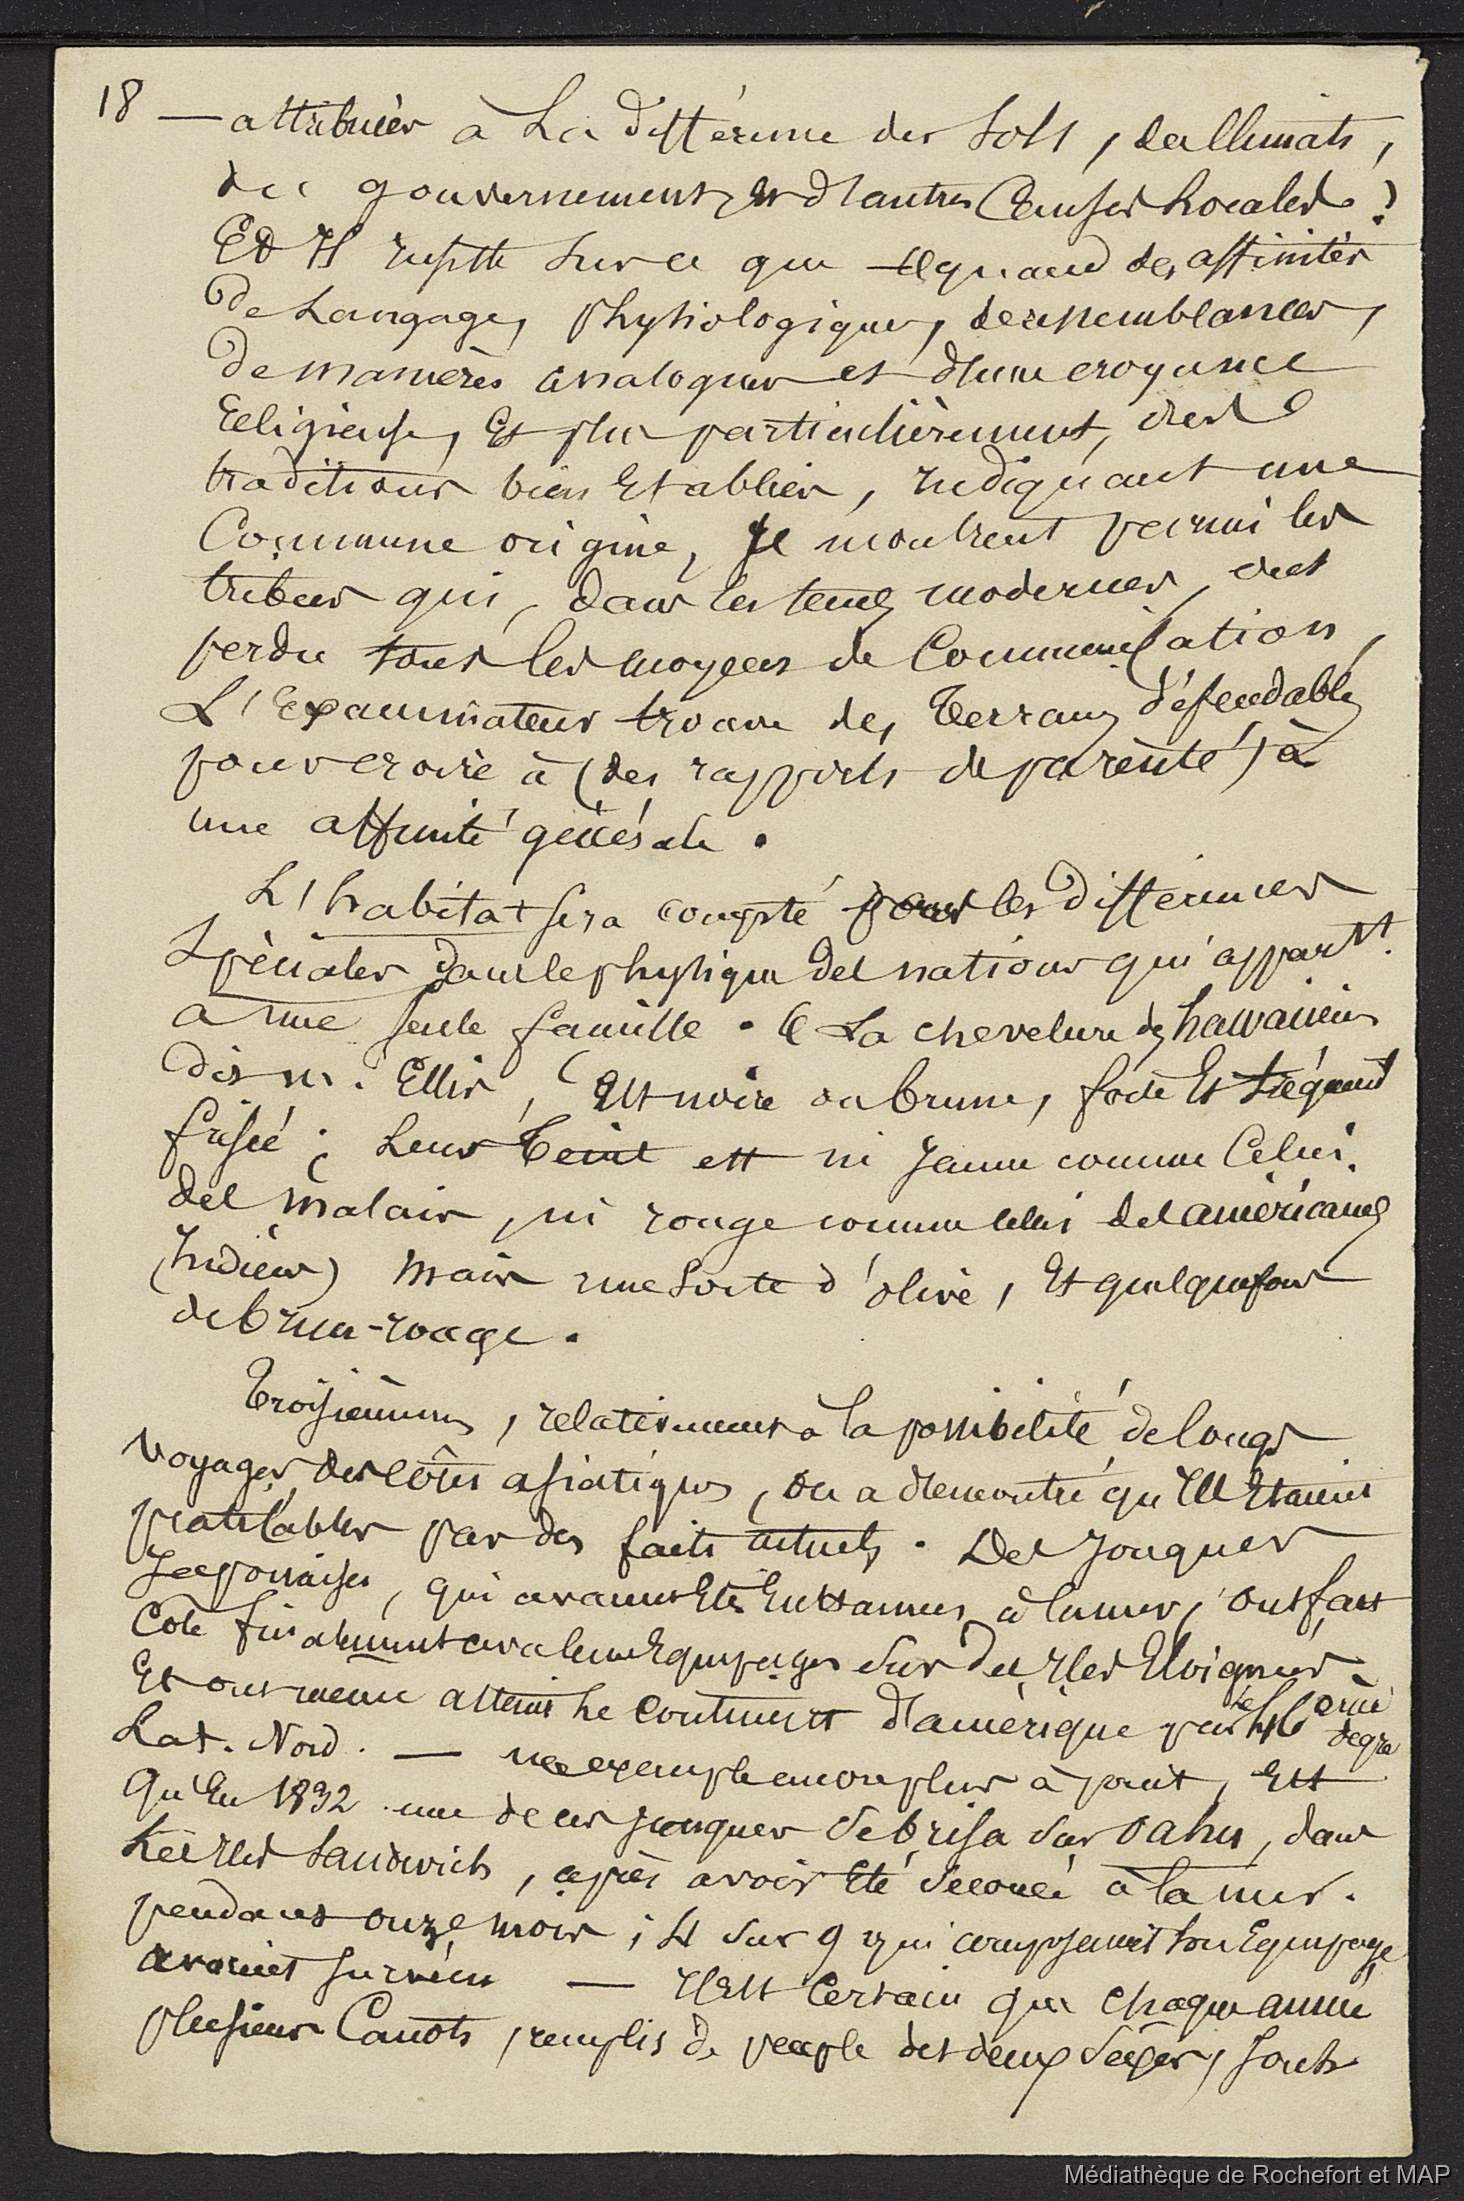 18 — attribuées à La différence des sols, de climats,
de gouvernement, et d'autres Causes Locales ?
Et Il insiste sur ce que quand des affinités
De Langage, physiologiques, de ressemblances,
De manières analogues et d'une croyance
Religieuse, Et plus particulièrement, des
traditions bien Etablies, Indiquant une
Commune origine, se montrent parmi les
tribus qui, dans les tems modernes, ont
perdu tous les moyens de Communication,
L'Examinateur trouve des terrains défendables
pour croire à (des rapports de parenté) à
une affinité générale.
L'habitat sera compté pour les Différences
Spéciales dans le physique des nations qui appart.t
à une seule famille. La chevelure des hawaiiens
Dit m. Ellis, Est noire ou brune, forte Et fréquent
frisée ; Leur teint est ni jaune comme Celui
des malais, ni rouge comme celui des américains
(Indiens) mais une sorte d'olive, Et quelquefois
de brun-rouge.
Troisièmem, relativement à la possibilité de longs
voyages des côtes asiatiques, on a démontré qu'Ils Etaient
praticables par des faits actuels. Des Jonques
Japonaises, qui avaient Eté à la mer, ont fait
Côte finalement avec leurs Equipages sur des Iles Eloignées.
Et ont même atteint Le Continent d'amérique par le 46 ème degré
Lat. Nord. — un exemple encore plus à point, Est
qu'En 1832 une de ces jonques se brisa sur Oahu, dans
Les Iles Sandwich, après avoir Eté secouée à la mer.
pendant onze mois ; 4 sur 9 qui composaient son Equipage
avaient survécu — Il Est Certain que chaque année
plusieurs Canots, remplis de peuple des deux sexes, sont
Médiathèque de Rochefort et MAP